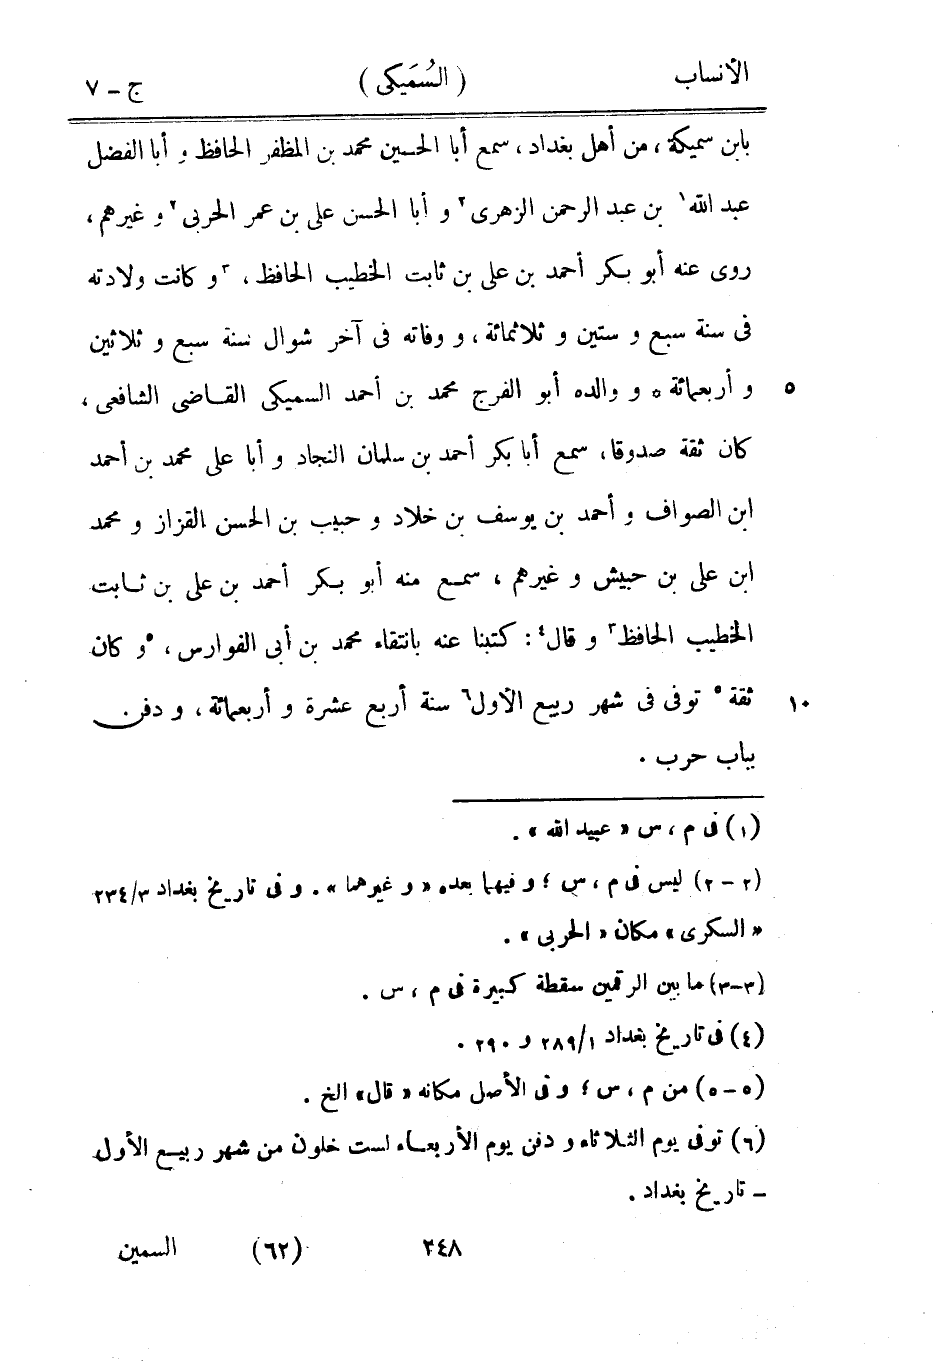 الأنساب ( السُمَيكى ) ج - ٧
بابن سميكة ، من أهل بغداد ، سمع أبا الحسين محمد بن المظفر الحافظ و أبا الفضل
عبد الله ١ بن عبد الرحمن الزهرى ٢ و أبا الحسن على بن عمر الحربى ٢ و غيرهم ،
روى عنه أبو بكر أحمد بن على بن ثابت الخطيب الحافظ ، ٣ و كانت ولادته
فى سنة سبع و ستين و ثلاثمائة ، و وفاته فى آخر شوال سنة سبع و ثلاثين
و أربعمائة ٥ و والده أبو الفرج محمد بن أحمد السميكى القاضى الشافعى ، ٥
كان ثقة صدوقا ، سمع أبا بكر أحمد بن سلمان النجاد و أبا على محمد بن أحمد
ابن الصواف و أحمد بن يوسف بن خلاد و حبيب بن الحسن القزاز و محمد
ابن على بن حبيش و غيرهم ، سمع منه أبو بكر أحمد بن على بن ثابت
الخطيب الحافظ ٣ و قال ٤ : كتبنا عنه بانتقاء محمد بن أبى الفوارس ، ٥ و كان
ثقة ٥ توفى فى شهر ربيع الأول ٦ سنة أربع عشرة و أربعمائة ، و دفن ١٠
بباب حرب .
(١) فى م ، س « عبيد الله » .
(٢ - ٢) ليس فى م ، س ؛ و فيهما بعده « و غيرهما » . و فى تاريخ بغداد ٢٣٤/٣
« السكرى » مكان « الحربى » .
(٣-٣) ما بين الرقمين سقطة كبيرة فى م ، س .
(٤) فى تاريخ بغداد ٢٨٩/١ و ٢٩٠ .
(٥ - ٥) من م ، س ؛ و فى الأصل مكانه « قال » الخ .
(٦) توفى يوم الثلاثاء و دفن يوم الأربعاء لست خلون من شهر ربيع الأول
ـ تاريخ بغداد .
٢٤٨ (٦٢) السمين